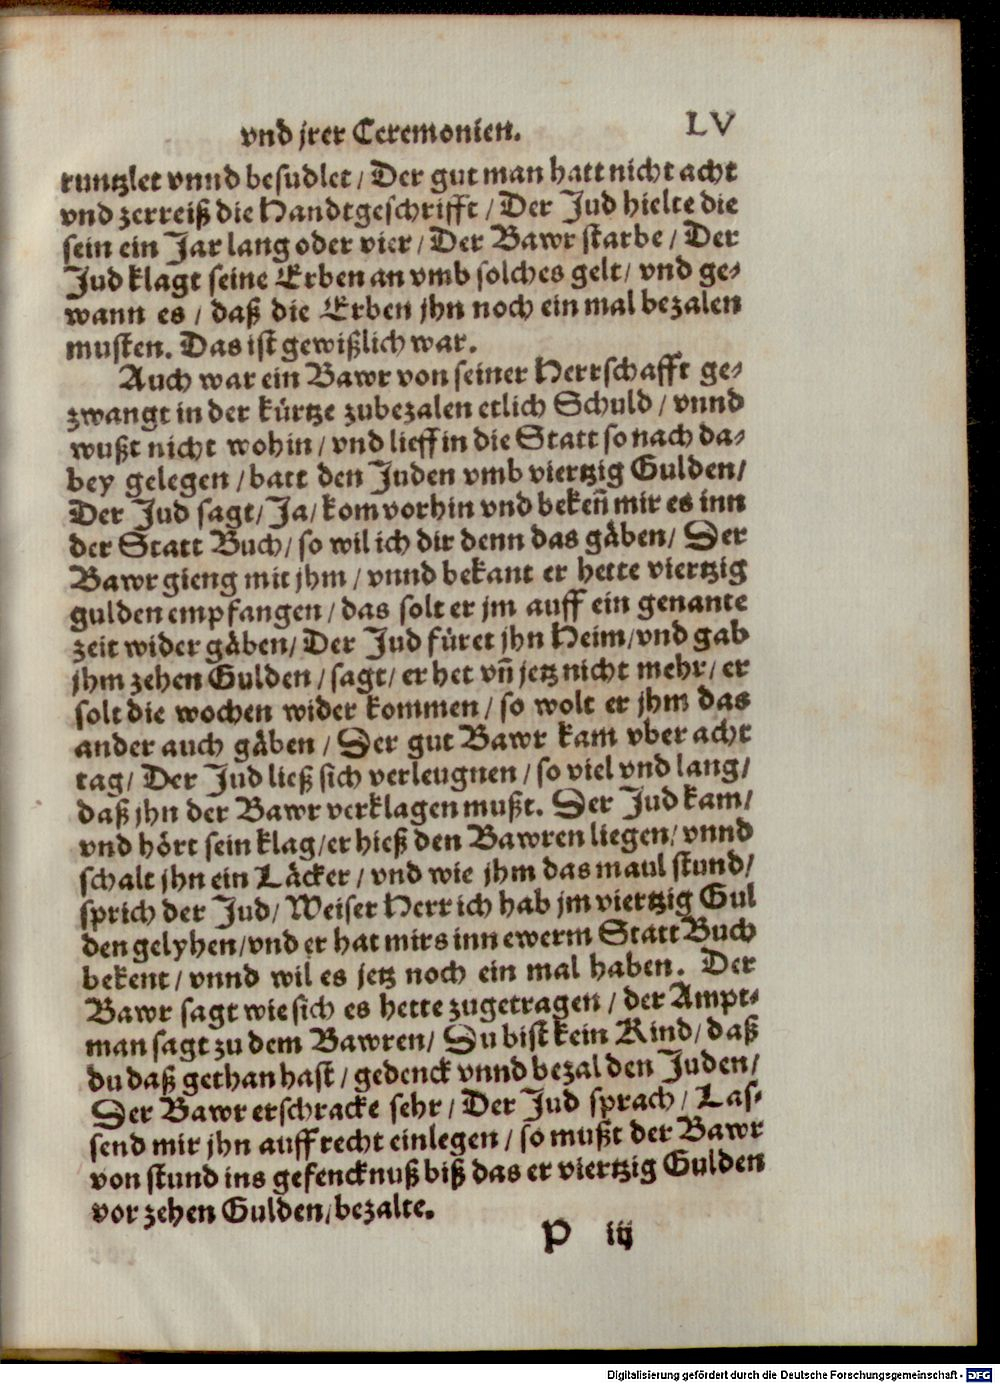 vnd jrer Ceremonien. LV
runtzlet vnnd besudlet / Der gut man hatt nicht acht
vnd zerreiß die Handtgeschrifft / Der Jud hielte die
sein ein Jar lang oder vier / Der Bawr starbe / Der
Jud klagt seine Erben an vmb solches gelt / vnd ge⸗
wann es / daß die Erben jhn noch ein mal bezalen
musten. Das ist gewißlich war.
Auch war ein Bawr von seiner Herrschafft ge⸗
zwangt in der kürtze zubezalen etlich Schuld / vnnd
wußt nicht wohin / vnd lieff in die Statt so nach da⸗
bey gelegen / batt den Juden vmb viertzig Gulden /
Der Jud sagt / Ja / kom vorhin vnd bekeñ mir es inn
der Statt Buch / so wil ich dir denn das gåben / Der
Bawr gieng mit jhm / vnnd bekant er hette viertzig
gulden empfangen / das solt er jm auff ein genante
zeit wider gåben / Der Jud füret jhn Heim / vnd gab
jhm zehen Gulden / sagt / er het vñ jetz nicht mehr / er
solt die wochen wider kommen / so wolt er jhm das
ander auch gåben / Der gut Bawr kam vber acht
tag / Der Jud ließ sich verleugnen / so viel vnd lang /
daß jhn der Bawr verklagen mußt. Der Jud kam /
vnd hört sein klag / er hieß den Bawren liegen / vnnd
schalt jhn ein Läcker / vnd wie jhm das maul stund /
sprich der Jud / Weiser Herr ich hab jm viertzig Gul
den gelyhen / vnd er hat mirs inn ewerm Statt Buch
bekent / vnnd wil es jetz noch ein mal haben. Der
Bawr sagt wie sich es hette zugetragen / der Ampt⸗
man sagt zu dem Bawren / Du bist kein Kind / daß
du daß gethan hast / gedenck vnnd bezal den Juden /
Der Bawr erschracke sehr / Der Jud sprach / Las⸗
send mir jhn auff recht einlegen / so mußt der Bawr
von stund ins gefencknuß biß das er viertzig Gulden
vor zehen Gulden / bezalte.
P iij
Digitalisierung gefördert durch die Deutsche Forschungsgemeinschaft - DFG